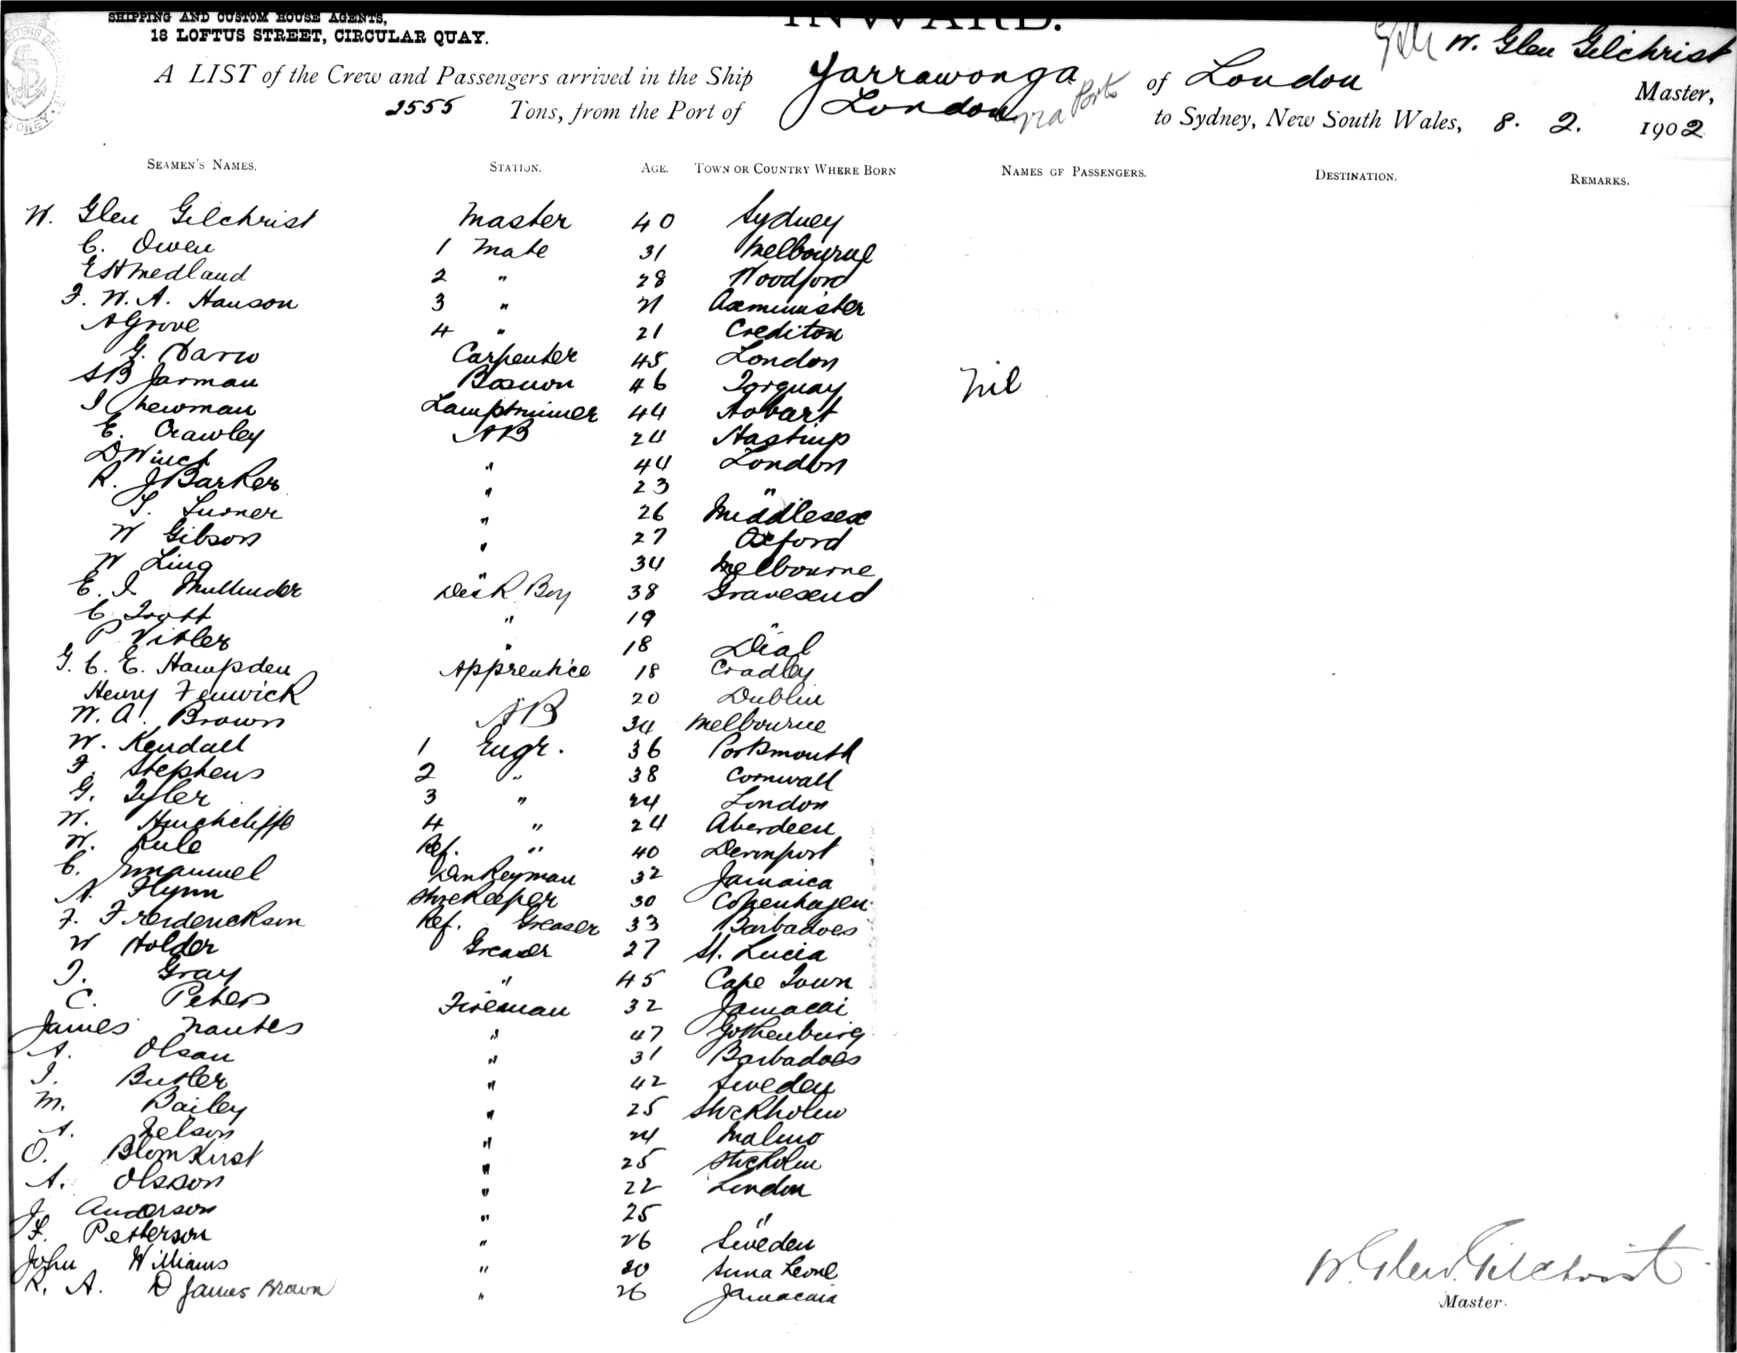 SHIPPING AND CUSTOM HOUSE AGENTS,
18 LOFTUS STREET, CIRCULAR QUAY.
INWARD.
W. Glen Gilchrist
A LIST of the Crew and Passengers arrived in the Ship Yarrawonga of London Master,
2555 Tons, from the Port of London via Ports to Sydney, New South Wales, 8. 2. 1902
SEAMEN'S NAMES. STATION. AGE. TOWN OR COUNTRY WHERE BORN NAMES OF PASSENGERS. DESTINATION. REMARKS.
W. Glen Gilchrist Master 40 Sydney
C. Owen 1 Mate 31 Melbourne
E H Medland 2 " 28 Woodford
F. W. A. Hanson 3 " 21 Axminister
A Grove 4 " 21 Crediton
G. Carpenter 45 London
S B Jarman Bosun 46 Torquay
Nil
J Newman Lamptrimmer 44 Hobart
E. Crawley AB 24 Hastings
D Winch " 44 London
R. J Barker " 23 "
T. Turner " 26 Middlesex
W Gibson " 27 Oxford
W Ling " 34 Melbourne
E. J. Mullender Deck Boy 38 Gravesend
C. Trott " 19 "
P Vitler " 18 Dial
G. C. E. Hampden Apprentice 18 Cradley
Henry Fenwick " 20 Dublin
W. A. Brown AB 34 Melbourne
W. Kendall 1 Engr. 36 Portsmouth
F. Stephens 2 " 38 Cornwall
G. Tyler 3 " 24 London
W. Hinchcliffe 4 " 24 Aberdeen
W. Rule Ref. " 40 Devenport
C. Emanuel Donkeyman 32 Jamaica
A. Flynn Storekeeper 30 Copenhagen
F. Frederickson Ref. Greaser 33 Barbadoes
W Holder Greaser 27 St. Lucia
J. Gray " 45 Cape Town
C. Peters Fireman 32 Jamacai
James Nantes " 47 Gothenburg
A. Olsan " 31 Barbadoes
J. Butler " 42 Sweden
M. Bailey " 25 Stockholm
A. Nelson " 24 Malmo
O. Blomkirst " 25 Stocholm
A. Olsson " 22 London
J. Anderson " 25 "
F. Petterson " 26 Sweden
John Williams " 20 Leone
R. A. D James Brown " 26 Jamacaia
W. Glen Gilchrist
Master.